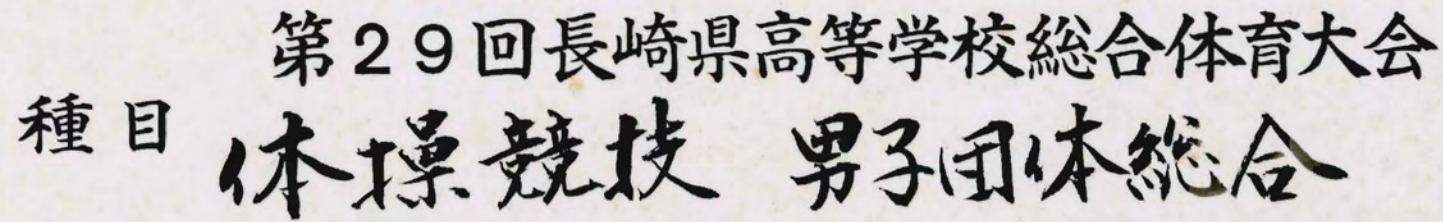 第29回長崎県高等学校総合体育大会
種目 体操競技 男子団体総合